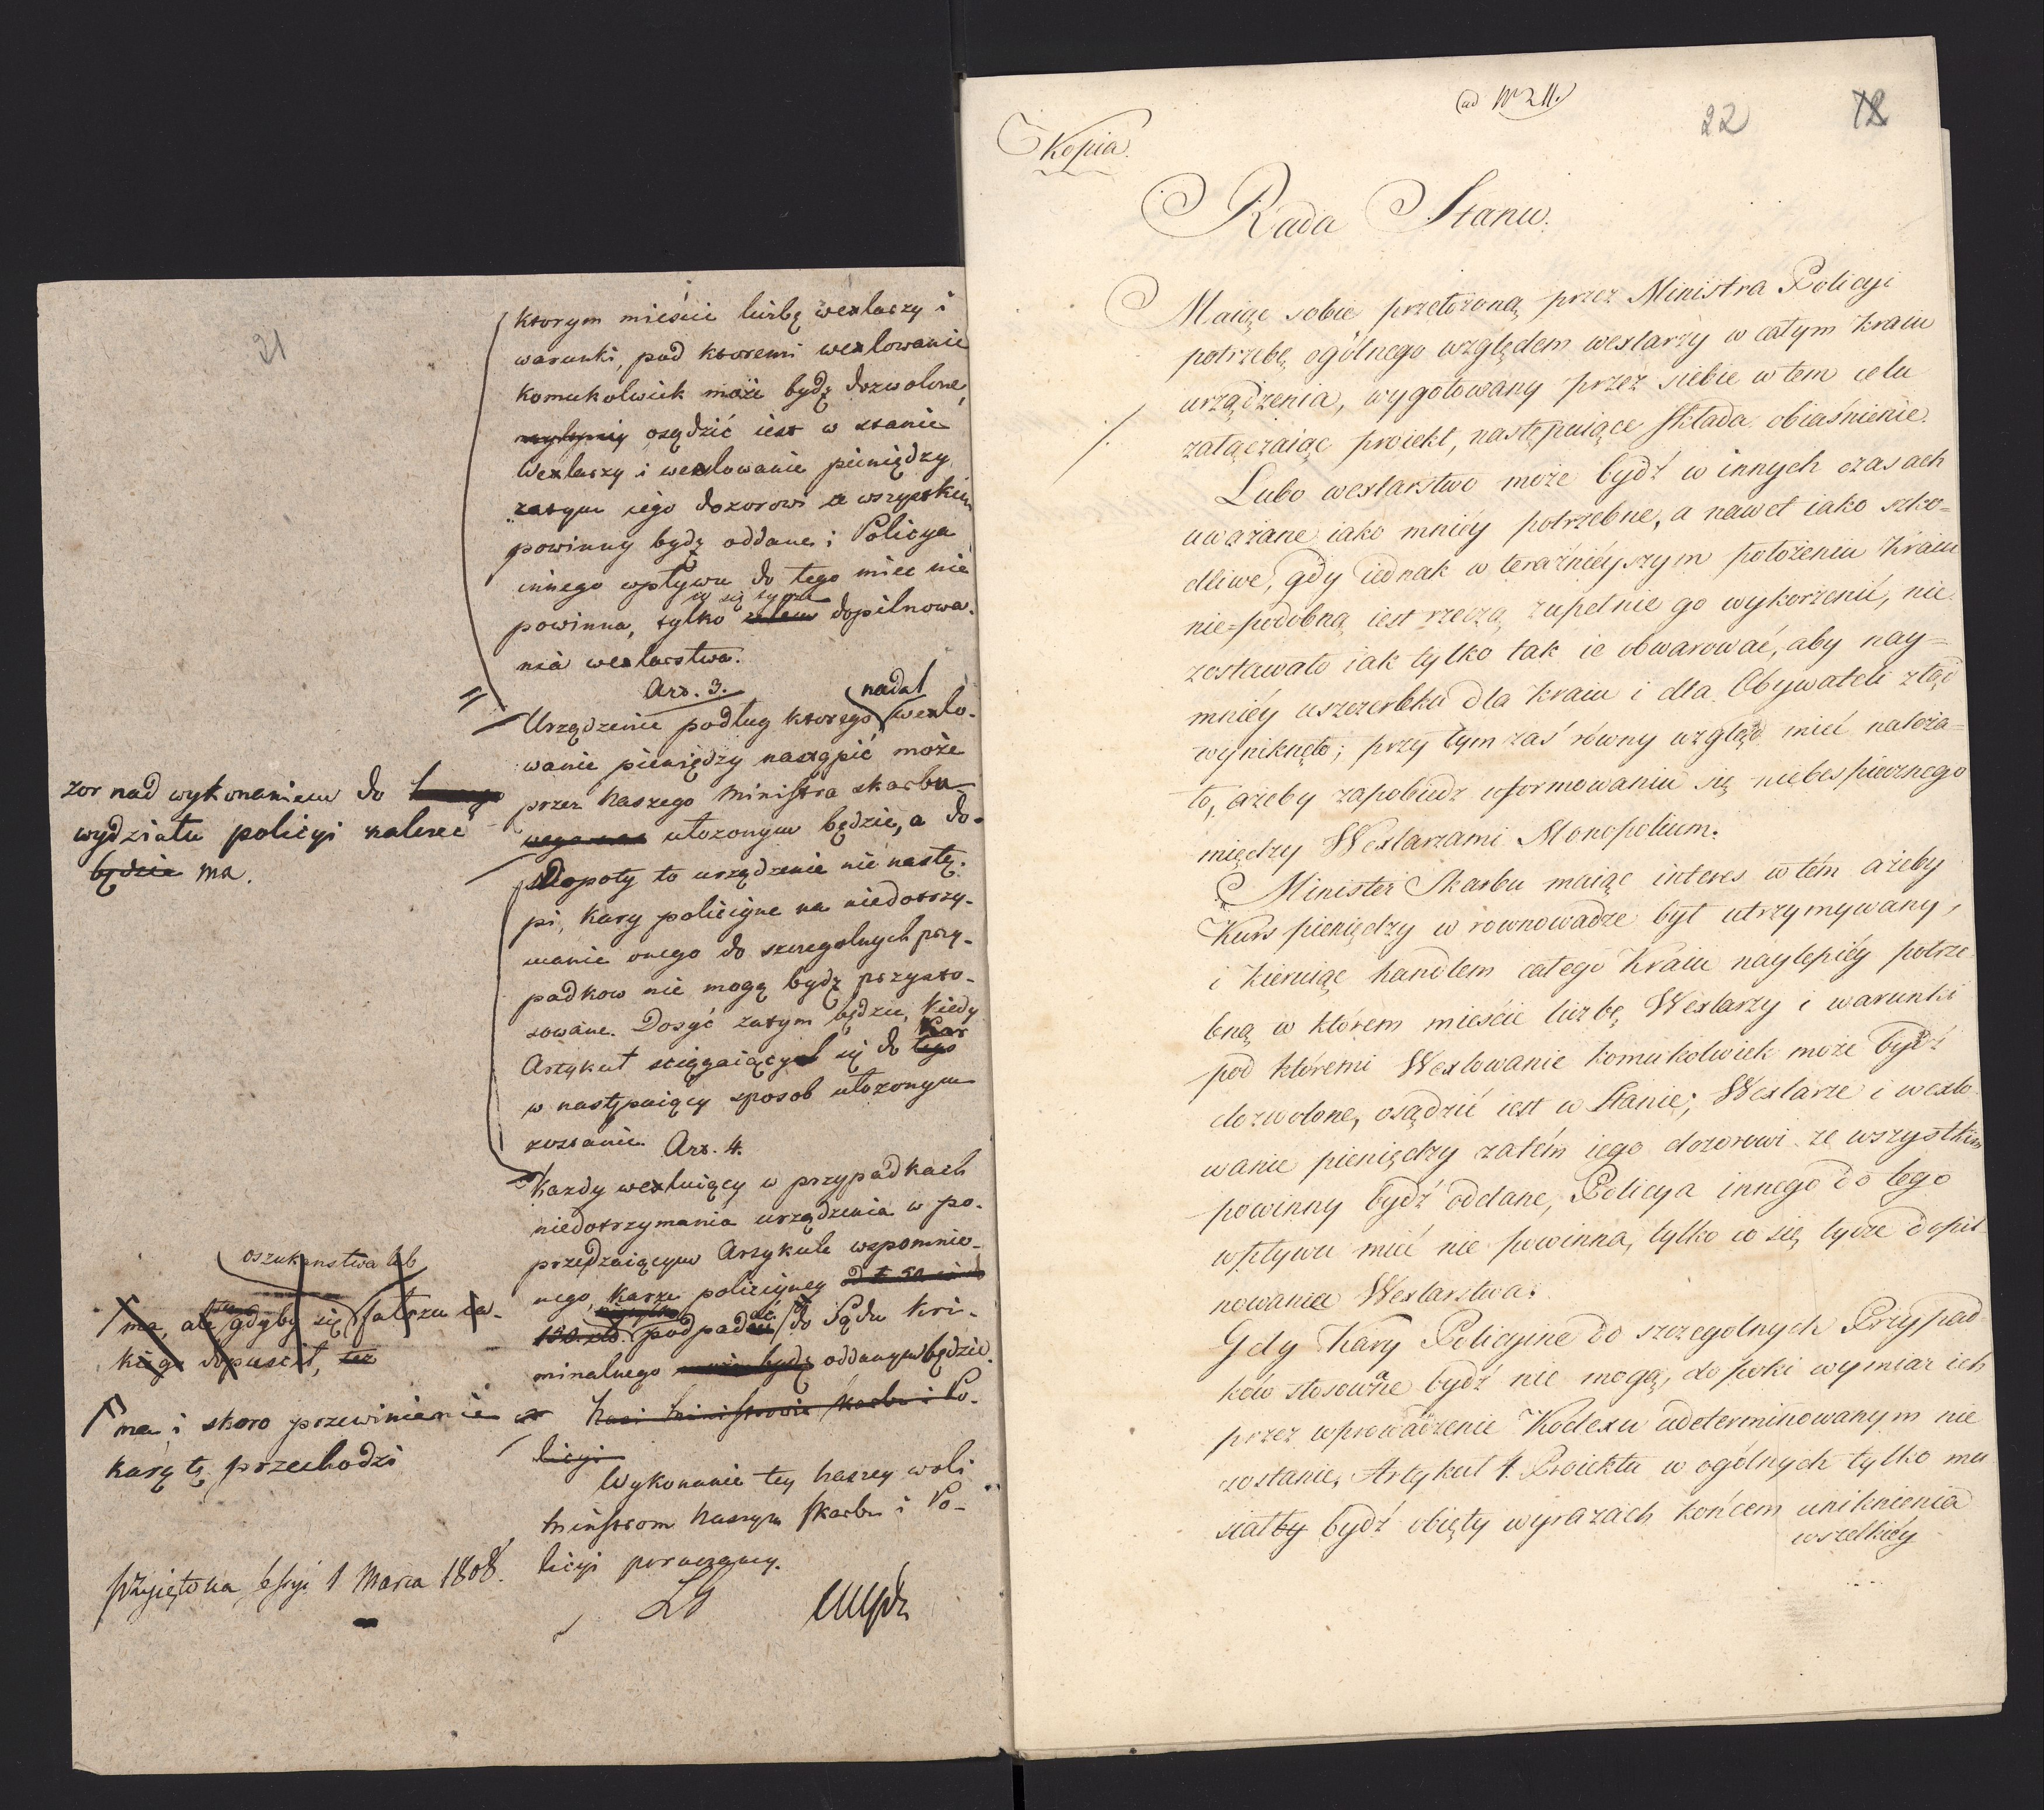 21
ktorym mieście liczbę wexlarzy i
warunki, pod ktoremi wexlowanie
komukolwiek może bydź dozwolone,
osądzić iest w stanie
Wexlarzy i wexlowanie pieniędzy
zatym iego dozorowi ze wszystkim
powinny bydź oddane i Policya
innego wpływu do tego mieć nie
co się tycze
powinna, tylko dopilnowa-
nia wexlarstwa.
Art. 3.
nadal
Urządzenie podług ktorego wexlo-
wanie pieniędzy nastąpić może
przez Naszego Ministra skarbu
ułożonym będzie, a do-
zor nad wykonaniem do
wydziału policyi należeć
będzie ma.
Dopoty to urządzenie nie nastę-
pi, kary policyine na niedotrzy-
manie onego do szczegolnych przy-
padkow nie mogą bydź przysto-
sowane. Dosyć zatym będzie, kiedy
Artykuł sciągaiący się do tego kar
w następuiący sposob ułożonym
zostanie. Art. 4.
Każdy wexluiący w przypadkach
niedotrzymania urządzenia w po-
przedzaiącym Artykule wspomnio-
nego, karze policyiney
podpadać do Sądu kri-
minalnego oddanym będzie.
oszukanstwa lub
ma, ale gdyby się fałszu ia-
kiego dopuścił, też
ma i skoro przewinienie
karę tę przechodzi
Nasi Ministrowie skarbu i Po-
licyi
Wykonanie tey Naszey woli
Ministrom Naszym skarbu i Po-
licyi poruczamy.
Przyięto na Sessyi 1 Marca 1808.
(ad Nr 211.)
22
12
Kopia.
Rada Stanu.
Maiąc sobie przełożoną przez Ministra Policyi
potrzebę ogólnego względem wexlarzy w całym kraiu
urządzenia, wygotowany przez siebie w tem celu
załączaiąc proiekt, następuiące składa obiaśnienie.
Lubo wexlarstwo może bydź w innych czasach
uważane iako mniéy potrzebne, a nawet iako szko=
dliwe, gdy iednak w teraźniéyszym położeniu kraiu
nie=podobną iest rzeczą, zupełnie go wykorzenić, nie
zostawało iak tylko tak ie obwarować, aby nay=
mniéy uszczerbku dla kraiu i dla Obywateli ztąd
wyniknęło; przy tym zaś równy wzgląd mieć należa=
ło, ażeby zapobiedz uformowaniu się niebespiecznego
między Wexlarzami Monopolium.
Minister Skarbu maiąc interes w tém ażeby
Kurs pieniędzy w rownowadze był utrzymywany,
i kieruiąc handlem całego kraiu naylepiéy potrze
bną w którem mieście liczbę Wexlarzy i warunki
pod któremi Wexlowanie komukolwiek może bydź
dozwolone, osądzić iest w Stanie; Wexlarze i wexlo
wanie pieniędzy zatém iego dozorowi ze wszystkim
powinny bydź oddane, Policya innego do tego
wpływu mieć nie powinna, tylko co się tycze dopil
nowania Wexlarstwa.
Gdy Kary Policyine do szczegolnych Przypad
ków stosowane bydź nie mogą, dopoki wymiar ich
przez wprowadzenie Kodexu udeterminowanym nie
zostanie, Artykuł 4. Proiektu w ogólnych tylko mu
siałby bydź obięty wyrazach końcem uniknienia
wszelkiéy